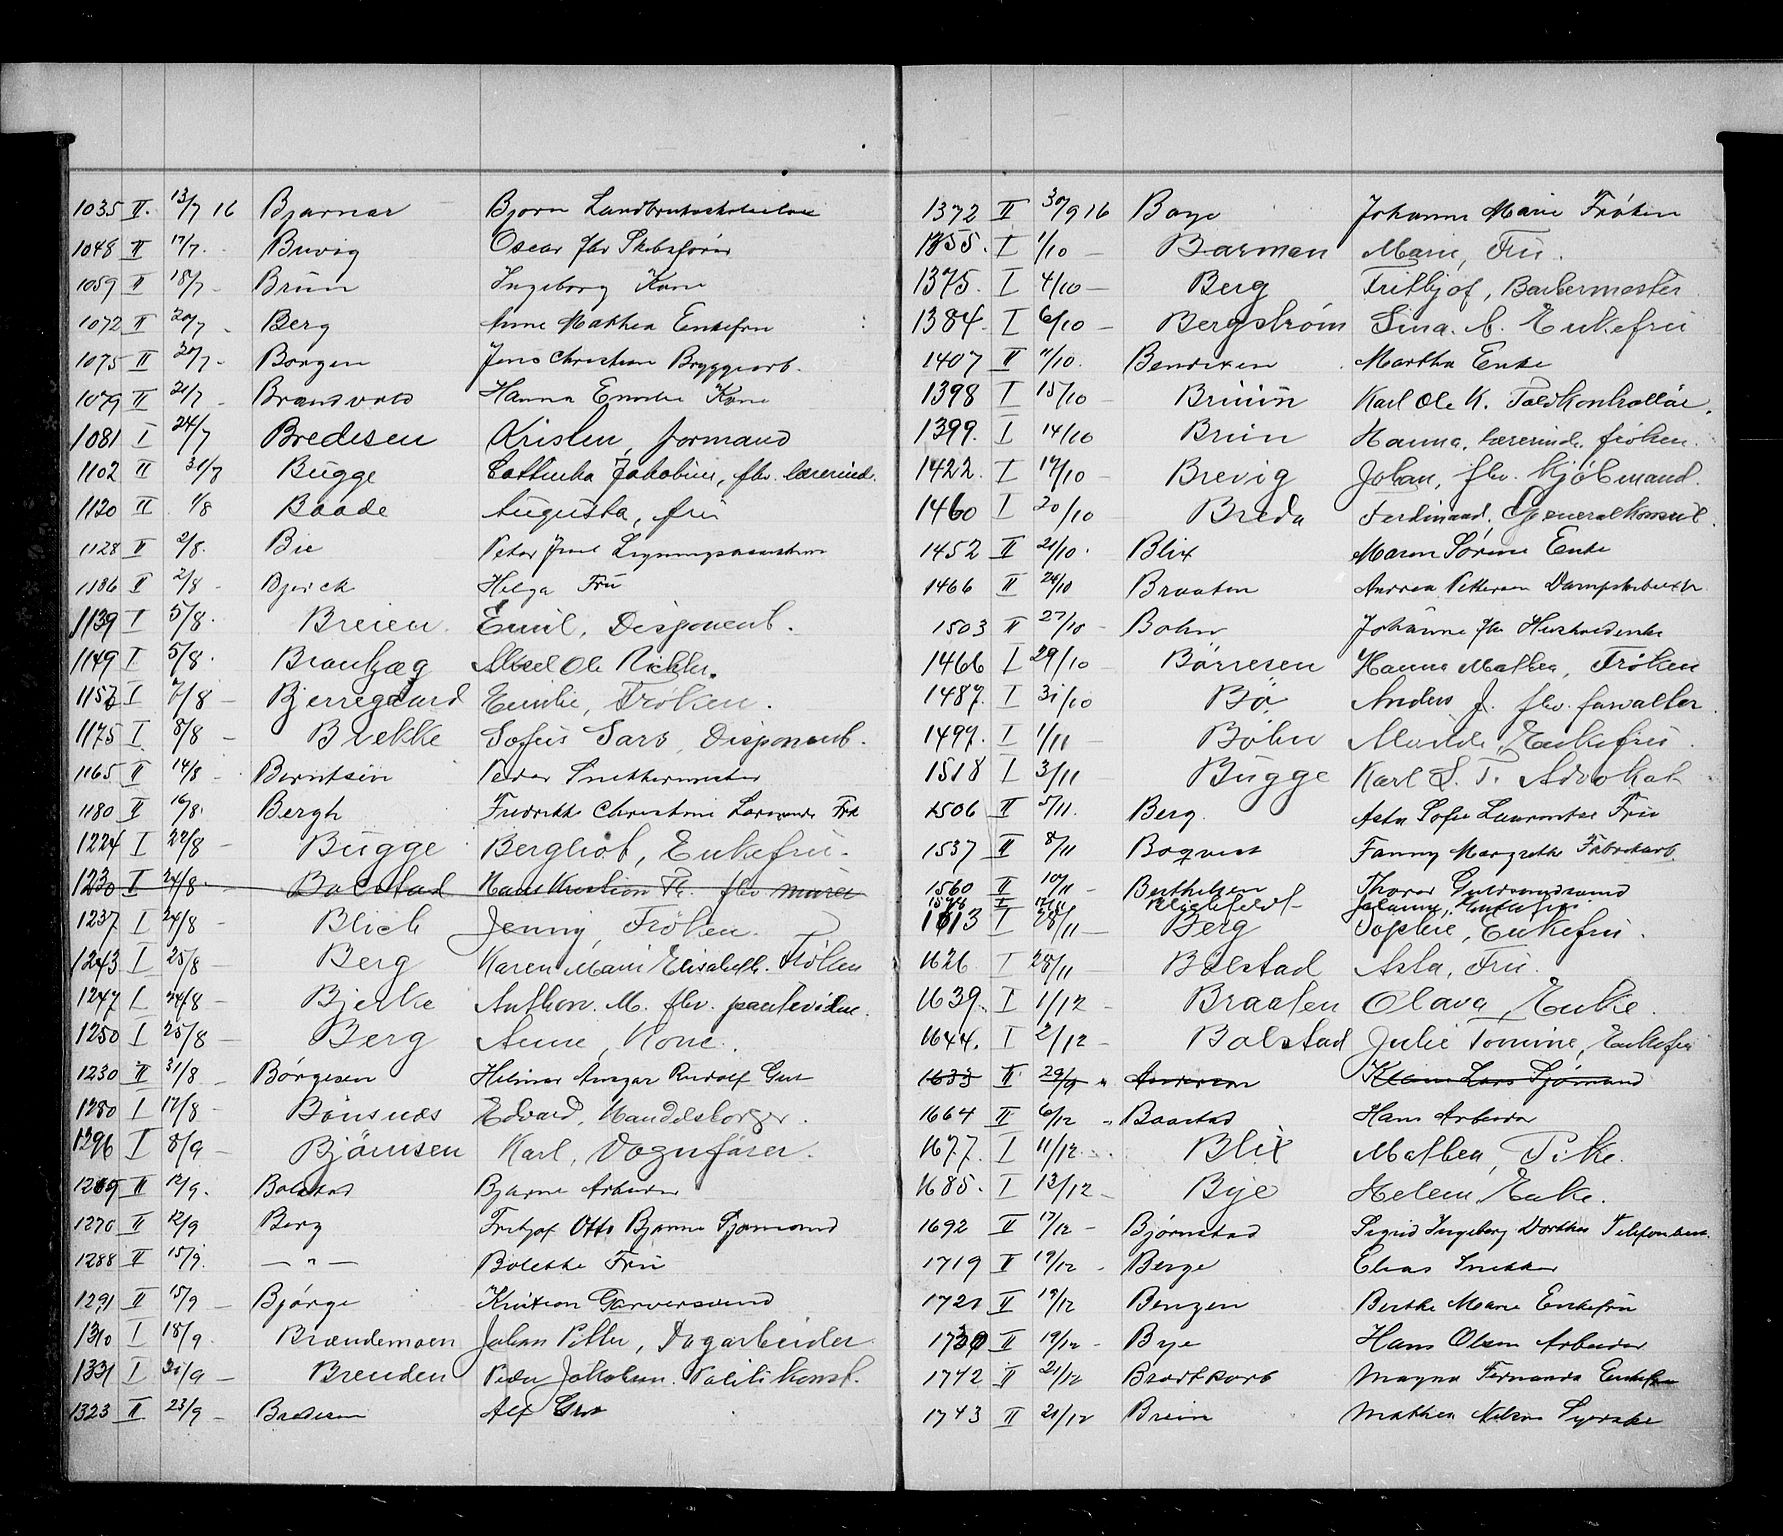 1035 II. 13/7 16 Bjarnar Bjørn
1048 II 17/7. Buvig Oscar fhv Skibsfører
1059 II 18/7 - Brun Ingeborg Kone
1072 II 20/7 - Berg Anne Mathea Enkefru
1075 II 20/7 - Borgen Jens Christian Bryggearb.
1079 II 21/7 - Brandvold Hanna Kone
1081 I 24/7 Bredesen Kristen, formand
1102 II 31/7 Bugge Cathinka Jakobine, fhv. lærerind.
1120 II 1/8 Baade Augusta, fru
1128 II 2/8. Bie Peter
1186 II 2/8 - Bjørck Helga Fru
1139 I 5/8. Breien. Emil, Disponent.
1149 I 5/8. Axel Ole Richter.
1157 I 7/8 - Bjerregaard Emilie, Frøken.
1175 I 8/8 - Brekke Sofus Sars, Disponent.
1165 II 14/8 - Berntsen Peder Snekkermester
1180 II 16/8. Bergh Fredrikke Christine Frk
1224 I 22/8 - Bugge Bergliot, Enkefru.
1230 I 24/8 - Bolstad Hans Kristian fhv. murer
1237 I 24/8 - Blich Jenny, Frøken.
1243 I 25/8 - Berg Karen Marie Elisabeth. Frøken
1247 I 24/8 - Bjerke Anthon. M. fhv.
1250 I 25/8 - Berg Anne, Kone.
1230 II 31/8 - Børgesen Helmer Ansgar Rudolf Gut
1280 I 17/8 - Bønsnæs Edvard, Handelsborger.
1296 I 8/9 - Bjørnsen Karl, Vognfører.
1269 II 12/9. Bolstad Bjarne Arbeider
1270 II 12/9 Berg Fritjof Otto Bjarne Sjømand
1288 II 15/9. — " — Bolette Fru
1291 II 15/9 - Bjørge Kristian Garversvend
1310 I 18/9. Brændemoen Johan Petter, Dagarbeider
1331 I 21/9 - Brenden Peder Jakobsen. Politikonst.
1323 II 23/9 - Bredesen Alf Gut
1372 II 30/9 16 Boye Johanne Marie Frøken
1355. I 1/10 - Barman Marie, Fru.
1375. I 4/10 - Berg Frithjof, Barbermester
1384. I 6/10 - Bergstrøm Lina. C. Enkefru
1407 II 11/10. Bendixen Martha Enke
1398 I 15/10 - Bruun Karl Ole K. Toldkontrollør.
1399. I 14/10 Brun Hanna, lærerinde, frøken.
1422. I 17/10 - Brevig Johan, fhv. Kjøbmand.
1460 I 20/10 - Breda Ferdinand, Generalkonsul.
1452 II 21/10. Blix Maren Sørine Enke
1466 II 24/10 Braaten Andrea Pettersen
1503 II 27/10 - Bohn Johanne fhv Husholderske
1466 I 29/10 - Børresen Hanna Mathea, Frøken
1487. I 31/10 Bø Anders J. fhv. forvalter.
1499. I 1/11 - Bøhn Enkefru.
1518 I 3/11 - Bugge Karl L. T. Advokat
1506 II 5/11. Berg. Asta Sofie Laurentse Fru
1537 II 8/11 Boqvist Fanny Margrethe Fabrikarb.
1560 II 10/11 - Berthelsen Thorar Guldsmedsvend
I 17/11 Blichfeldt Johanne, Enkefru
1613 I 28/11 - Berg Sophie, Enkefru.
1626 I 28/11 - Bolstad Asta, Fru.
1639. I 1/12 - Braaten Olava, Enke.
1644. I 2/12 - Bolstad Julie Tomine, Enkefru
1633 II 29/9 " Andersen Lars Sjømand
1664 II 6/12 " Baastad Hans Arbeider
1677. I 11/12. Blix Mathea, Pike.
1685. I 13/12 - Bye Helene, Enke.
1692 II 17/12 - Bjørnstad Sigrid Ingeborg Dorthea
1719 II 19/12 - Berge Elias Snekker
1721 II 19/12 Benzen Berthe Marie Enkefru
1730 II 19/12 - Bye Hans Olsen Arbeider
1742 II 21/12 Bradtkorb Magna Fernanda Enkefru
1743 II 21/12 Breien Mathea Nilsen Syerske